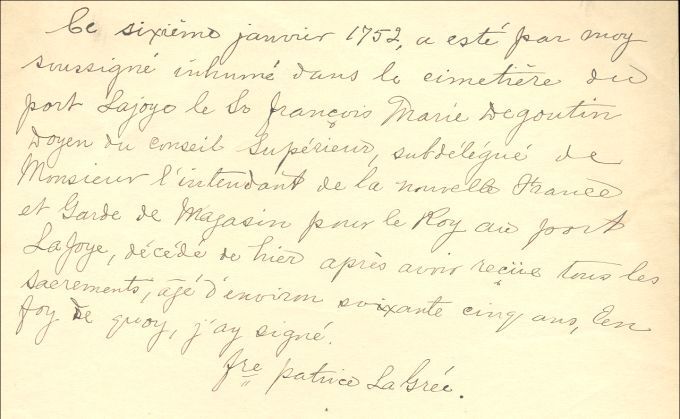 Ce sixième janvier 1752, a esté par moy
soussigné inhumé dans le cimetière du
port Lajoye le Sr françois Marie Degoutin
Doyen du conseil Supérieur, subdélégué de
Monsieur l'intendant de la nouvelle France
et Garde de Magasin pour le Roy au port
LaJoye, décédé de hier après avoir reçüe tous les
sacrements, agé d'environ soixante cinq ans, En
foy de quoy, j'ay signé.
fre patrice LaGrée.